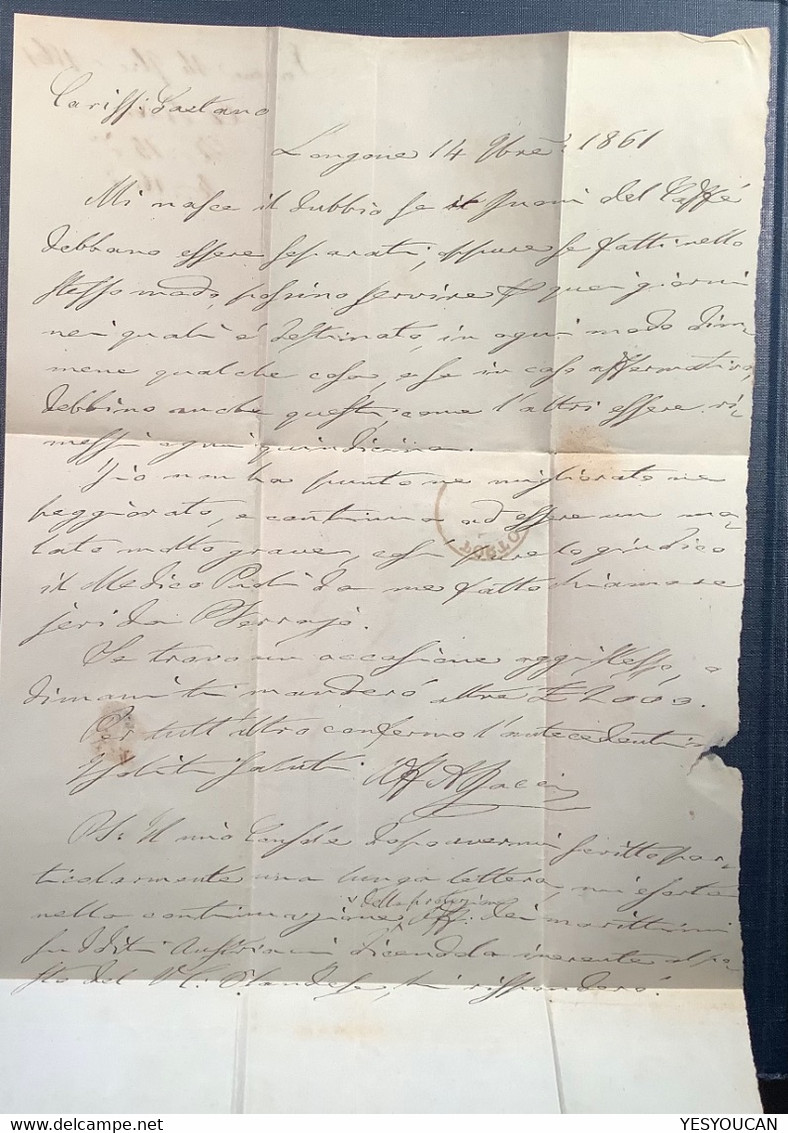 Cariss: Gaetano
Longone 14 9bre: 1861
Mi nasce il dubbio se i Buoni del Caffé
debbano essere separati, oppure se fatti nello
stesso modo, possino servire p quei giorni
nei quali é destinato, in ogni modo dim=
mene qualche cosa, e se in caso affermativo,
debbino anche questi come l'altri essere ri=
messi ogni quindicina.
Zio non ha punto ne migliorato ne
peggiorato, e continua ad essere un ma=
lato molto grave, cosi pure lo giudicò
il Medico da me fatto chiamare
jeri da Ferrajo.
Se trovo un occasione oggi stesso, o
dimani ti manderó altre £ 2000.
Per tutt'altro confermo l'antecedente
Soliti Saluti
PS: Il mio Console dopo avermi scritto par=
ticolarmente una lunga lettera, mi esorta
nella continuazione della protezione aff: dei marittimi
sudditi Austriaci dicendola inerente al po=
sto del V. C. Olandese, ti risponderó.
YESYOUCAN